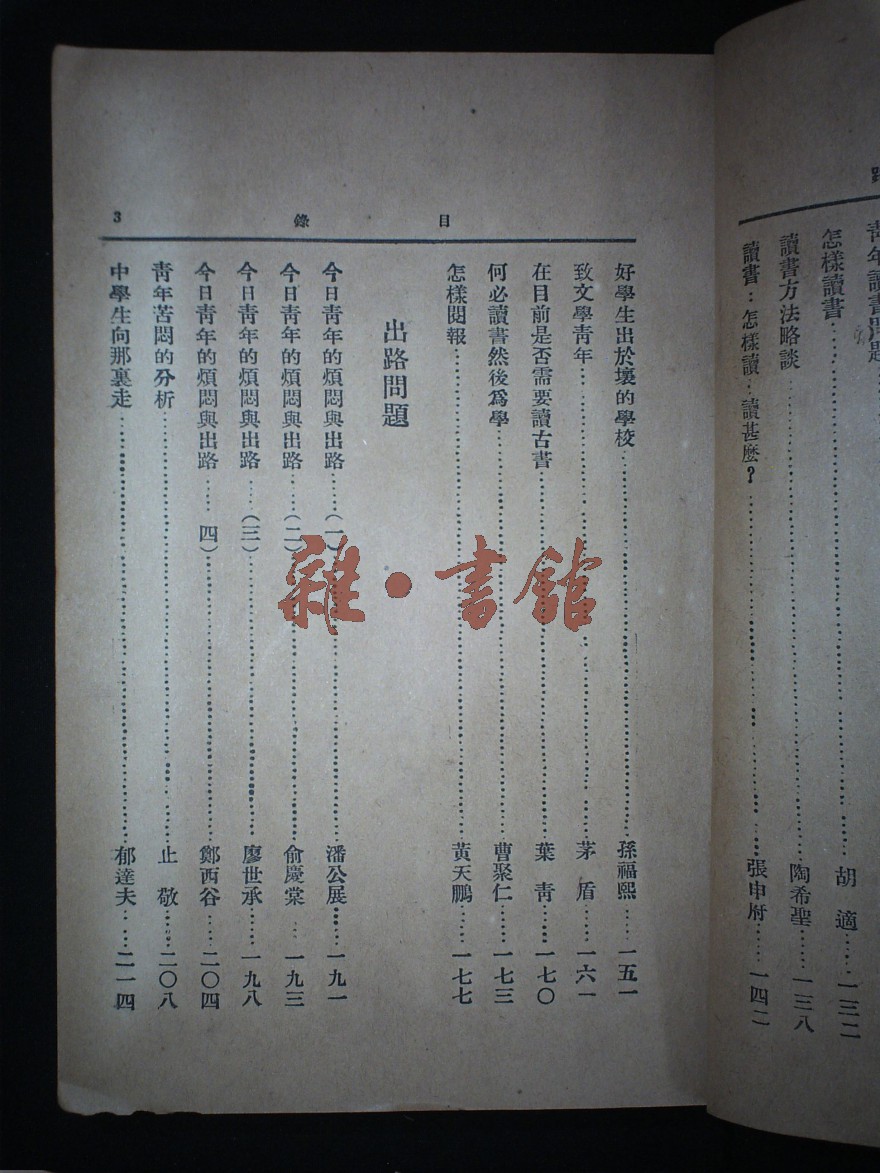 青年讀書問題
怎樣讀書……胡適……一三二
讀書方法略談……陶希聖……一三八
讀書：怎樣讀：讀甚麼？……張申府……一四二
目錄 3
好學生出於壞的學校……孫福熙……一五一
致文學青年……茅盾……一六一
在目前是否需要讀古書……葉青……一七〇
何必讀書然後爲學……曹聚仁……一七三
怎樣閱報……黃天鵬……一七七
出路問題
今日青年的煩悶與出路……(一)……潘公展……一九一
今日青年的煩悶與出路……(二)……俞慶棠……一九三
今日青年的煩悶與出路……(三)……廖世承……一九八
今日青年的煩悶與出路……四)……鄭西谷……二〇四
青年苦悶的分析……止敬……二〇八
中學生向那裏走……郁達夫……二一四
雜·書館